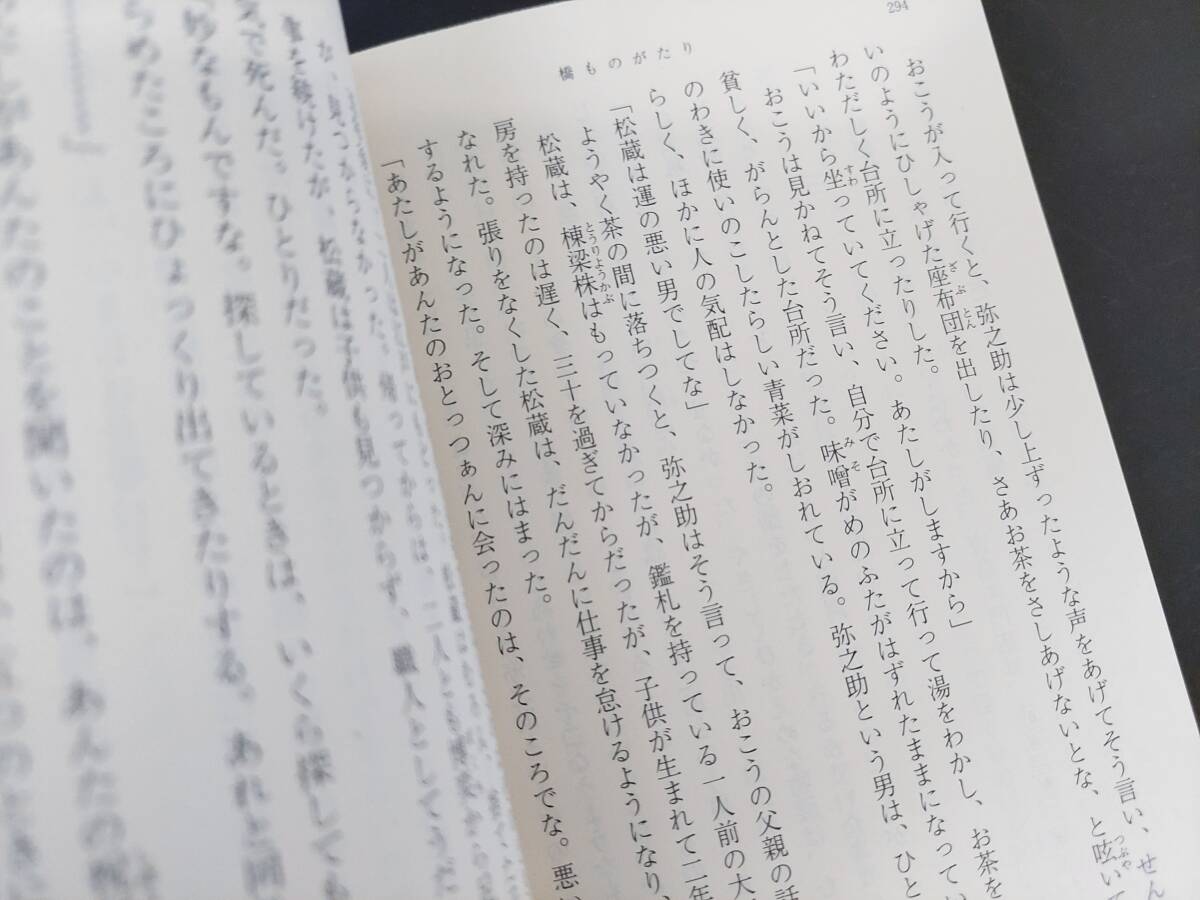 294
橋ものがたり
おこうが入って行くと、弥之助は少し上ずったような声をあげてそう言い、せん
いのようにひしゃげた座布団を出したり、さあお茶をさしあげないとな、と呟い
わただしく台所に立ったりした。
「いいから坐っていてください。あたしがしますから」
おこうは見かねてそう言い、自分で台所に立って行って湯をわかし、お茶を
貧しく、がらんとした台所だった。味噌がめのふたがはずれたままになってい
のわきに使いのこしたらしい青菜がしおれている。弥之助という男は、ひと
らしく、ほかに人の気配はしなかった。
「松蔵は運の悪い男でしてな」
ようやく茶の間に落ちつくと、弥之助はそう言って、おこうの父親の話
松蔵は、棟梁株はもっていなかったが、鑑札を持っている一人前の大
房を持ったのは遅く、三十を過ぎてからだったが、子供が生まれて二年
なれた。張りをなくした松蔵は、だんだんに仕事を怠けるようになり、
するようになった。そして深みにはまった。
「あたしがあんたのおとっつぁんに会ったのは、そのころでな。悪い
松蔵は子供も見つからず、職人としてうだ
死んだ。ひとりだった。
「妙なもんですな。探しているときは、いくら探しても
らめたころにひょっくり出てきたりする。あれと同
しがあんたのことを聞いたのは、あんたの